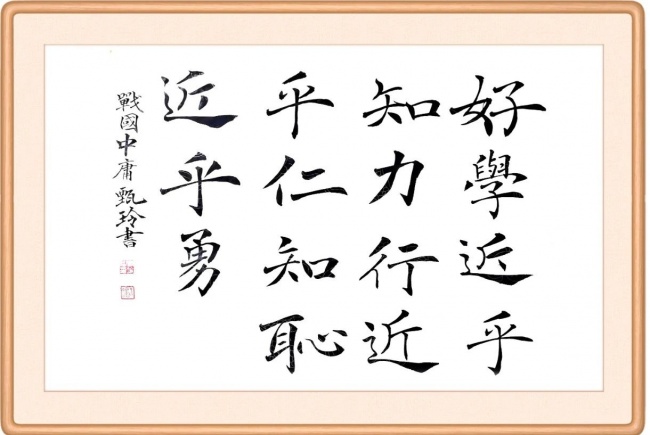 好學近乎
知力行近
乎仁知恥
近乎勇
戰國中庸甄玲書